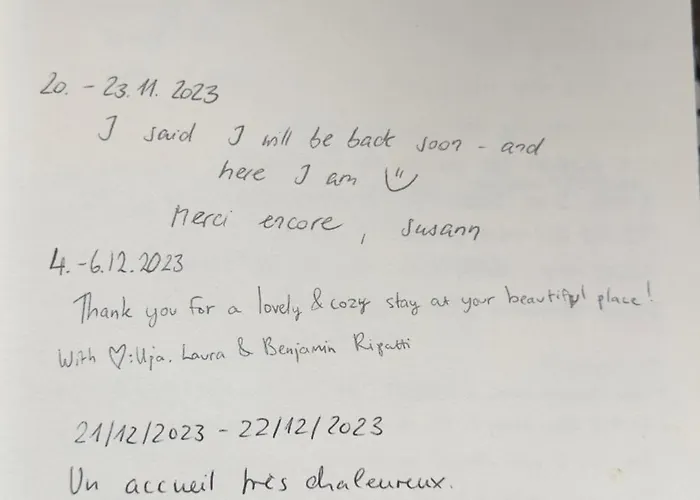 20. - 23.11. 2023
I said I will be back soon - and
here I am
Merci encore, Susann
4.-6.12.2023
Thank you for a lovely & cozy stay at your beautiful place!
With ♡: Laura & Benjamin
21/12/2023 - 22/12/2023
Un accueil très chaleureux.